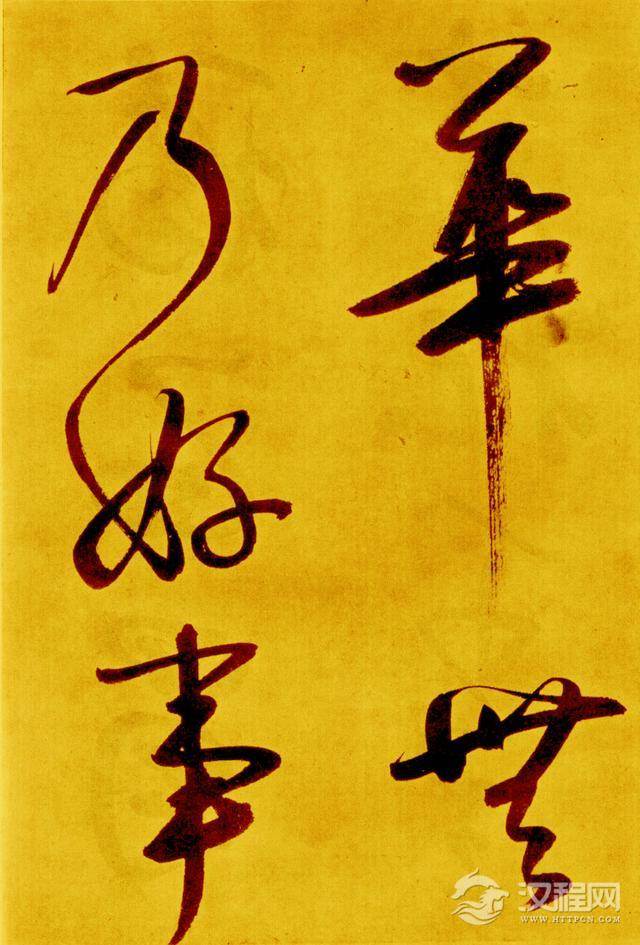 華無
乃好事
汉程网
WWW.HTTPCN.COM